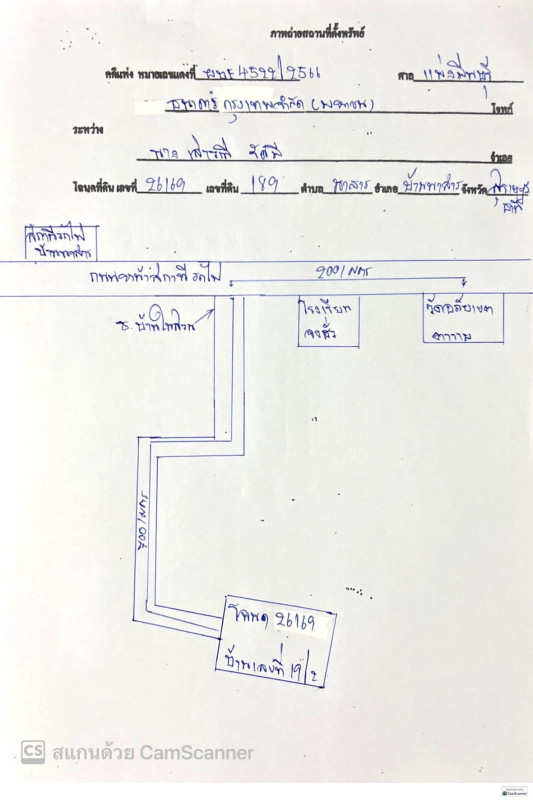 ภาพถ่ายสถานที่ตั้งทรัพย์
คดีแพ่ง หมายเลขแดงที่ ผบE4522/2566 ศาล แพ่งมีนบุรี
ธนาคาร กรุงเทพจำกัด (มหาชน) โจทก์
ระหว่าง
นาย จำเลย
โฉนดที่ดิน เลขที่ 26169 เลขที่ดิน 189 ตำบล นาสาร อำเภอ บ้านนาสาร จังหวัด สุราษฎร์
ธานี
สถานีรถไฟ
บ้านนาสาร
ถนนหน้าสถานีรถไฟ
200 เมตร
ซ. บ้านในสวน
โรงเรียน
เจงฮั่ว
วัดอภัยเขต
ตาราม
700 เมตร
โฉนด 26169
บ้านเลขที่ 19/2
CS สแกนด้วย CamScanner